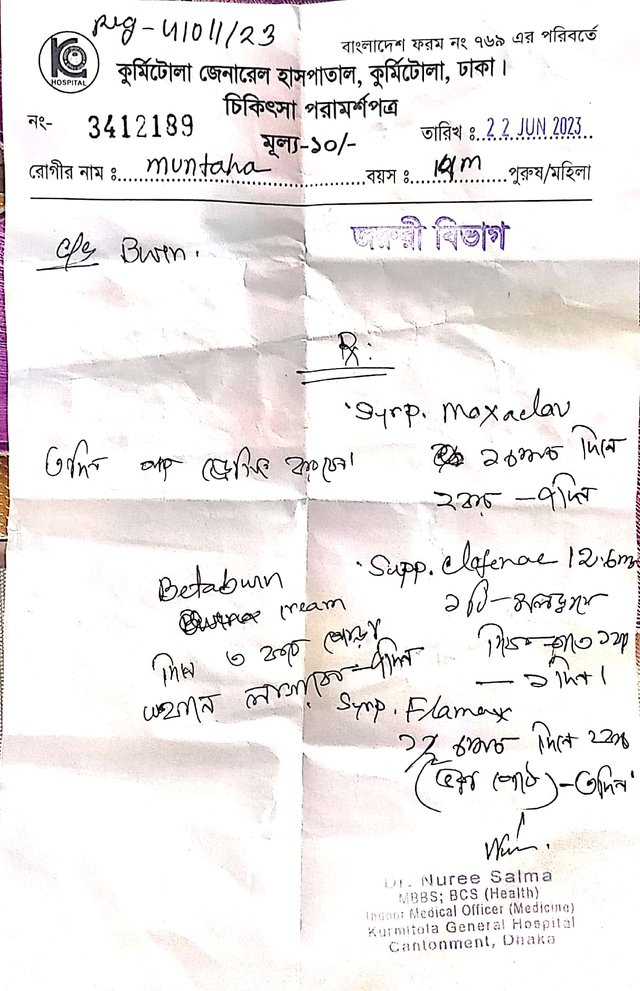 Reg - 41011/23
বাংলাদেশ ফরম নং ৭৬৯ এর পরিবর্তে
HOSPITAL
কুর্মিটোলা জেনারেল হাসপাতাল, কুর্মিটোলা, ঢাকা।
চিকিৎসা পরামর্শপত্র
নং- 3412189
মূল্য-১০/-
তারিখ : 22 JUN 2023
রোগীর নাম : muntaha বয়স : পুরুষ/মহিলা
জরুরী বিভাগ
Burn.
Rx:
Syrp. Moxaclav
২ চামচ দিনে
২ বার - ৭দিন
৩দিন পর ড্রেসিং করবেন।
Supp. Clofenac 12.5mg
১টি -
দিনে ২বার
Betaburn
cream
দিনে ৩ বার পোড়া
লাগাবেন - ৭দিন
Syrp. Flamex
চামচ দিনে ২বার
(ভরা পেটে) - ৩দিন
Dr. Nuree Salma
MBBS; BCS (Health)
Indoor Medical Officer (Medicine)
Kurmitola General Hospital
Cantonment, Dhaka